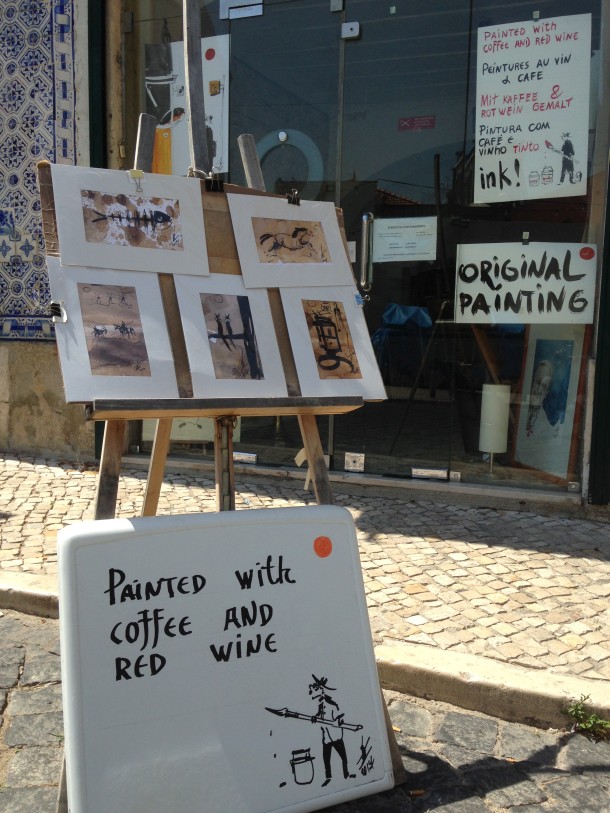 PAINTED WITH
COFFEE AND RED WINE
PEINTURES AU VIN
& CAFE
MIT KAFFEE &
ROTWEIN GEMALT
PINTURA COM
CAFÉ E
VINHO TINTO
ink!
ORIGINAL
PAINTING
PAINTED with
COFFEE AND
RED WINE